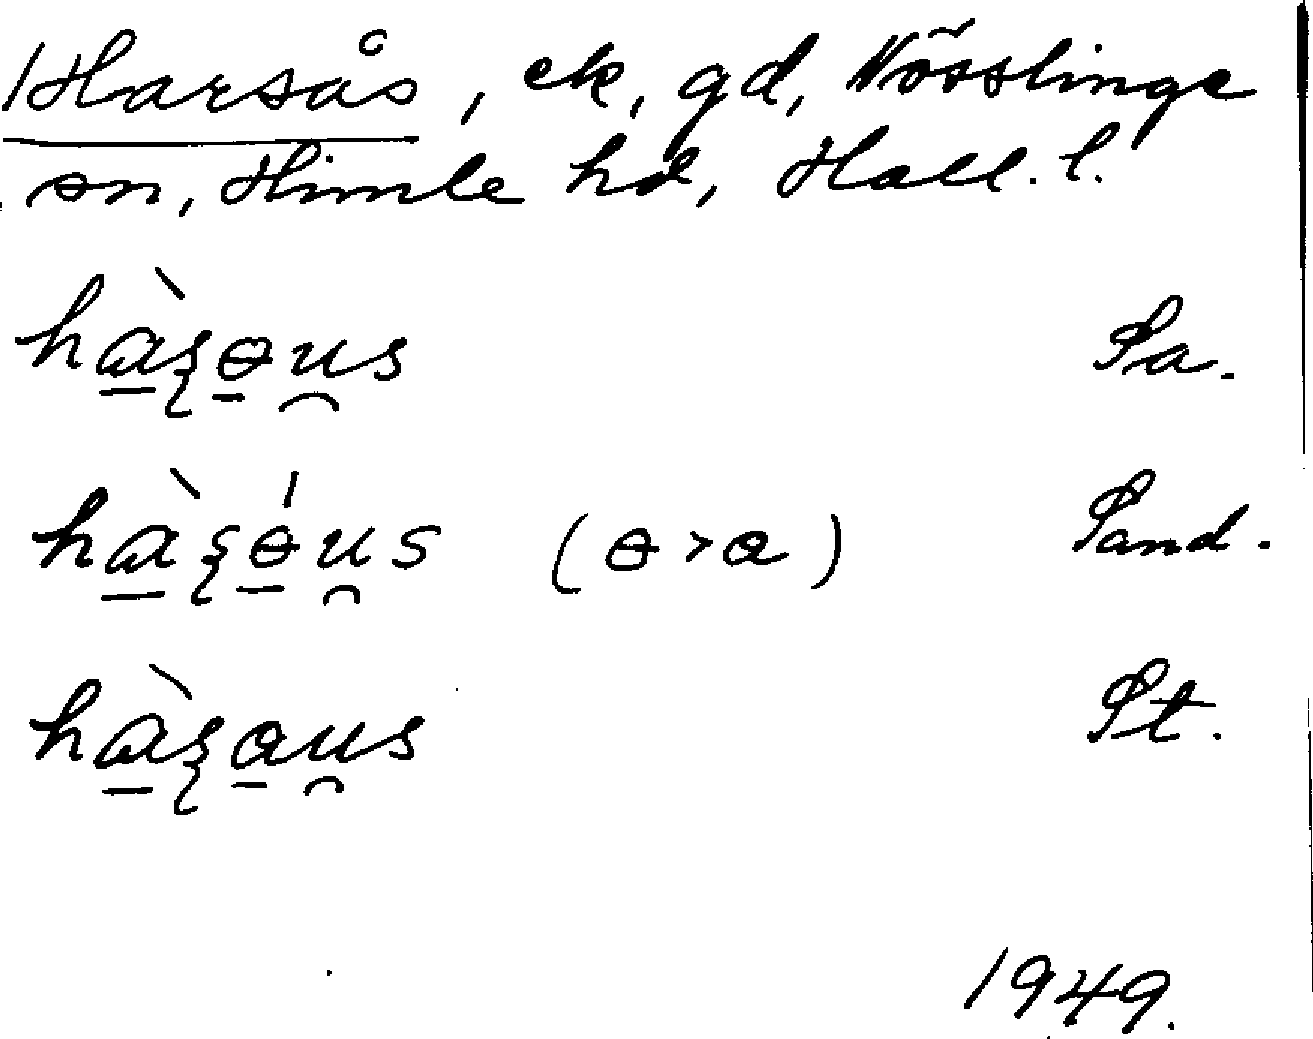 Harsås, ek, gd, Nösslinge
sn, Himle hd, Hall. l.
hàʂɵu̯s Sa.
hàʂɵ́u̯s (ɵ > a) Sand.
hàʂau̯s St.
1949.